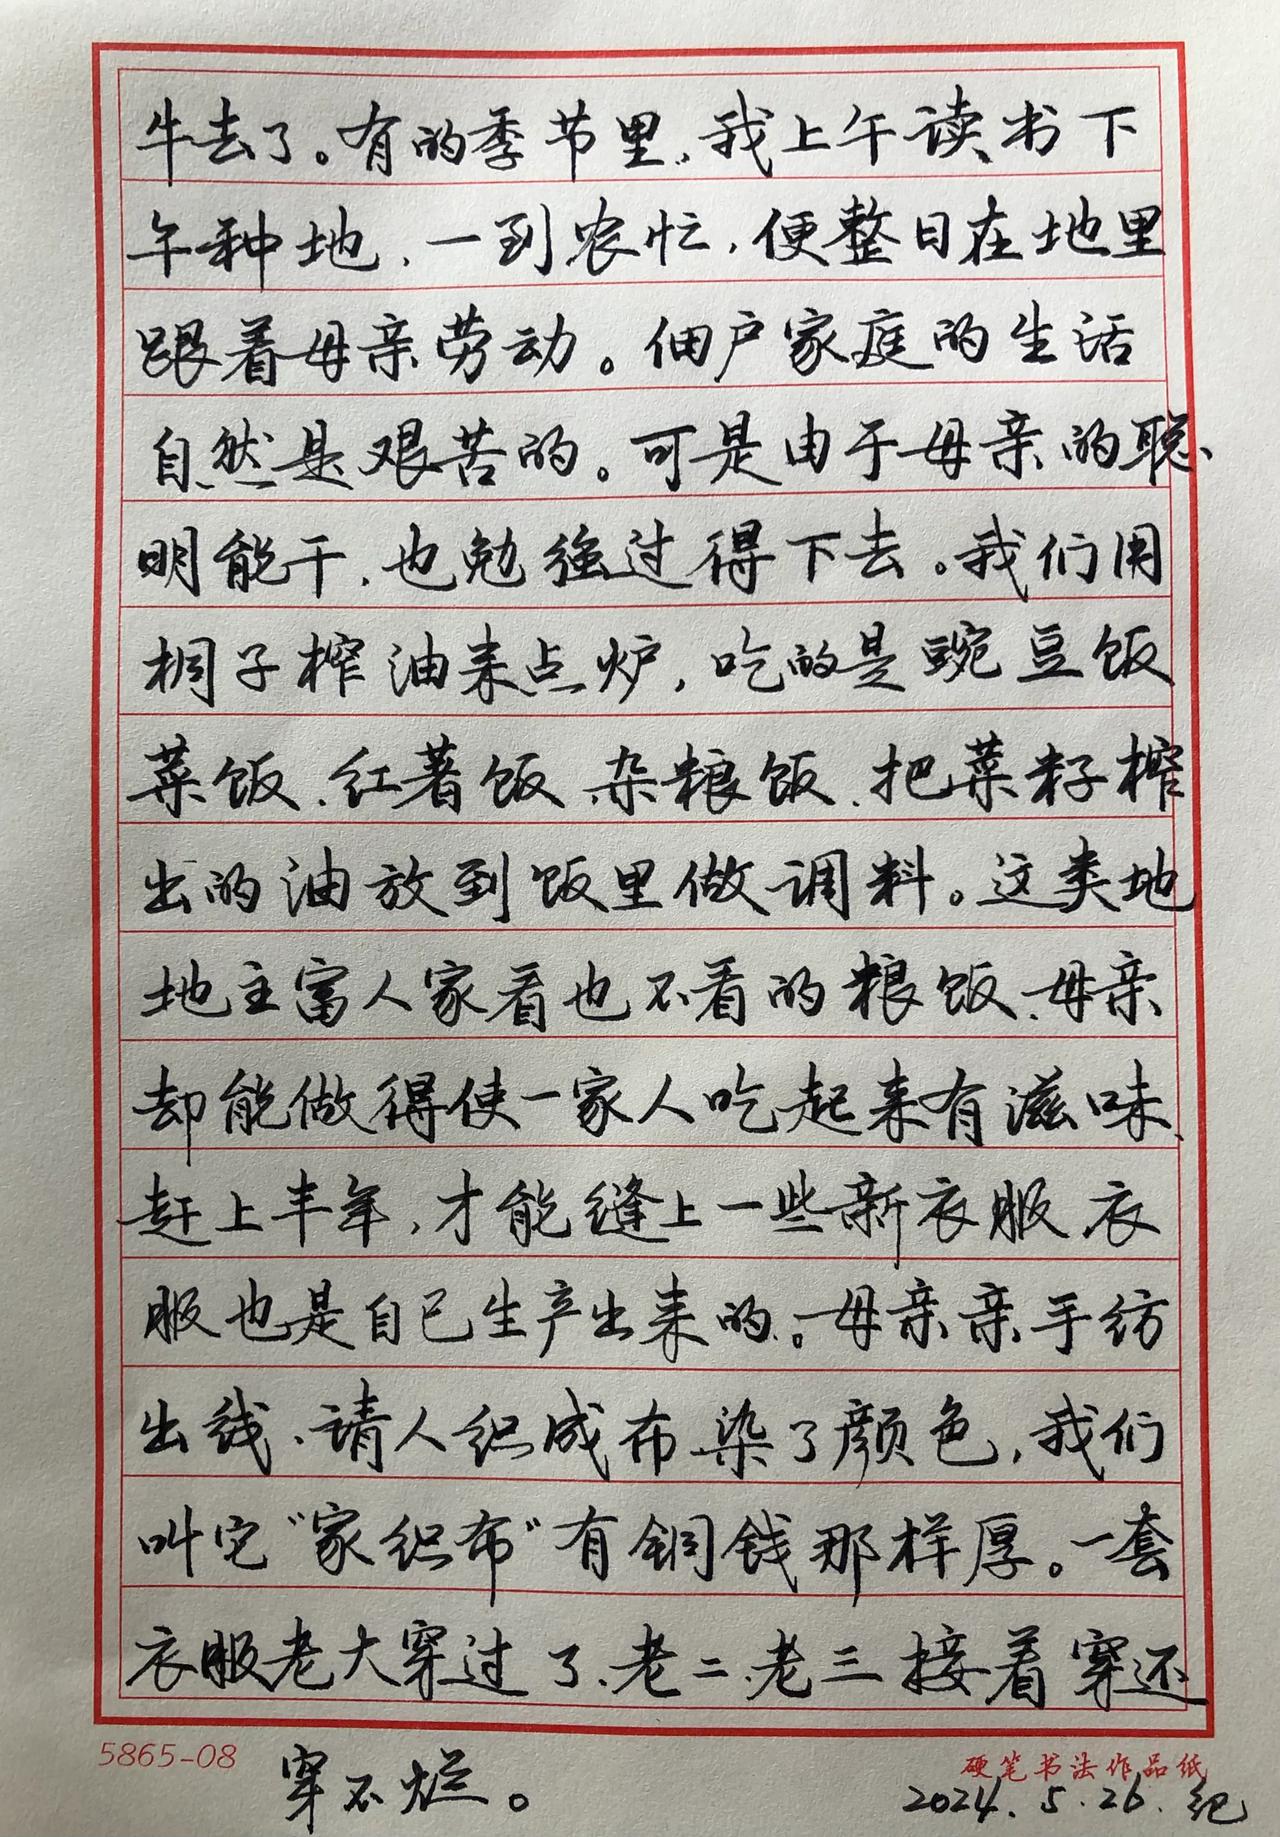 牛去了。有的季节里,我上午读书下
午种地,一到农忙,便整日在地里
跟着母亲劳动。佃户家庭的生活
自然是艰苦的。可是由于母亲的聪
明能干,也勉强过得下去。我们用
桐子榨油来点炉,吃的是豌豆饭
菜饭、红薯饭、杂粮饭、把菜籽榨
出的油放到饭里做调料。这类地
地主富人家看也不看的粮饭、母亲
却能做得使一家人吃起来有滋味、
赶上丰年,才能缝上一些新衣服、衣
服也是自己生产出来的。母亲亲手纺
出线、请人织成布、染了颜色,我们
叫它"家织布"有铜钱那样厚。一套
衣服老大穿过了、老二、老三接着穿还
穿不烂。
5865-08
硬笔书法作品纸
2024.5.26.纪